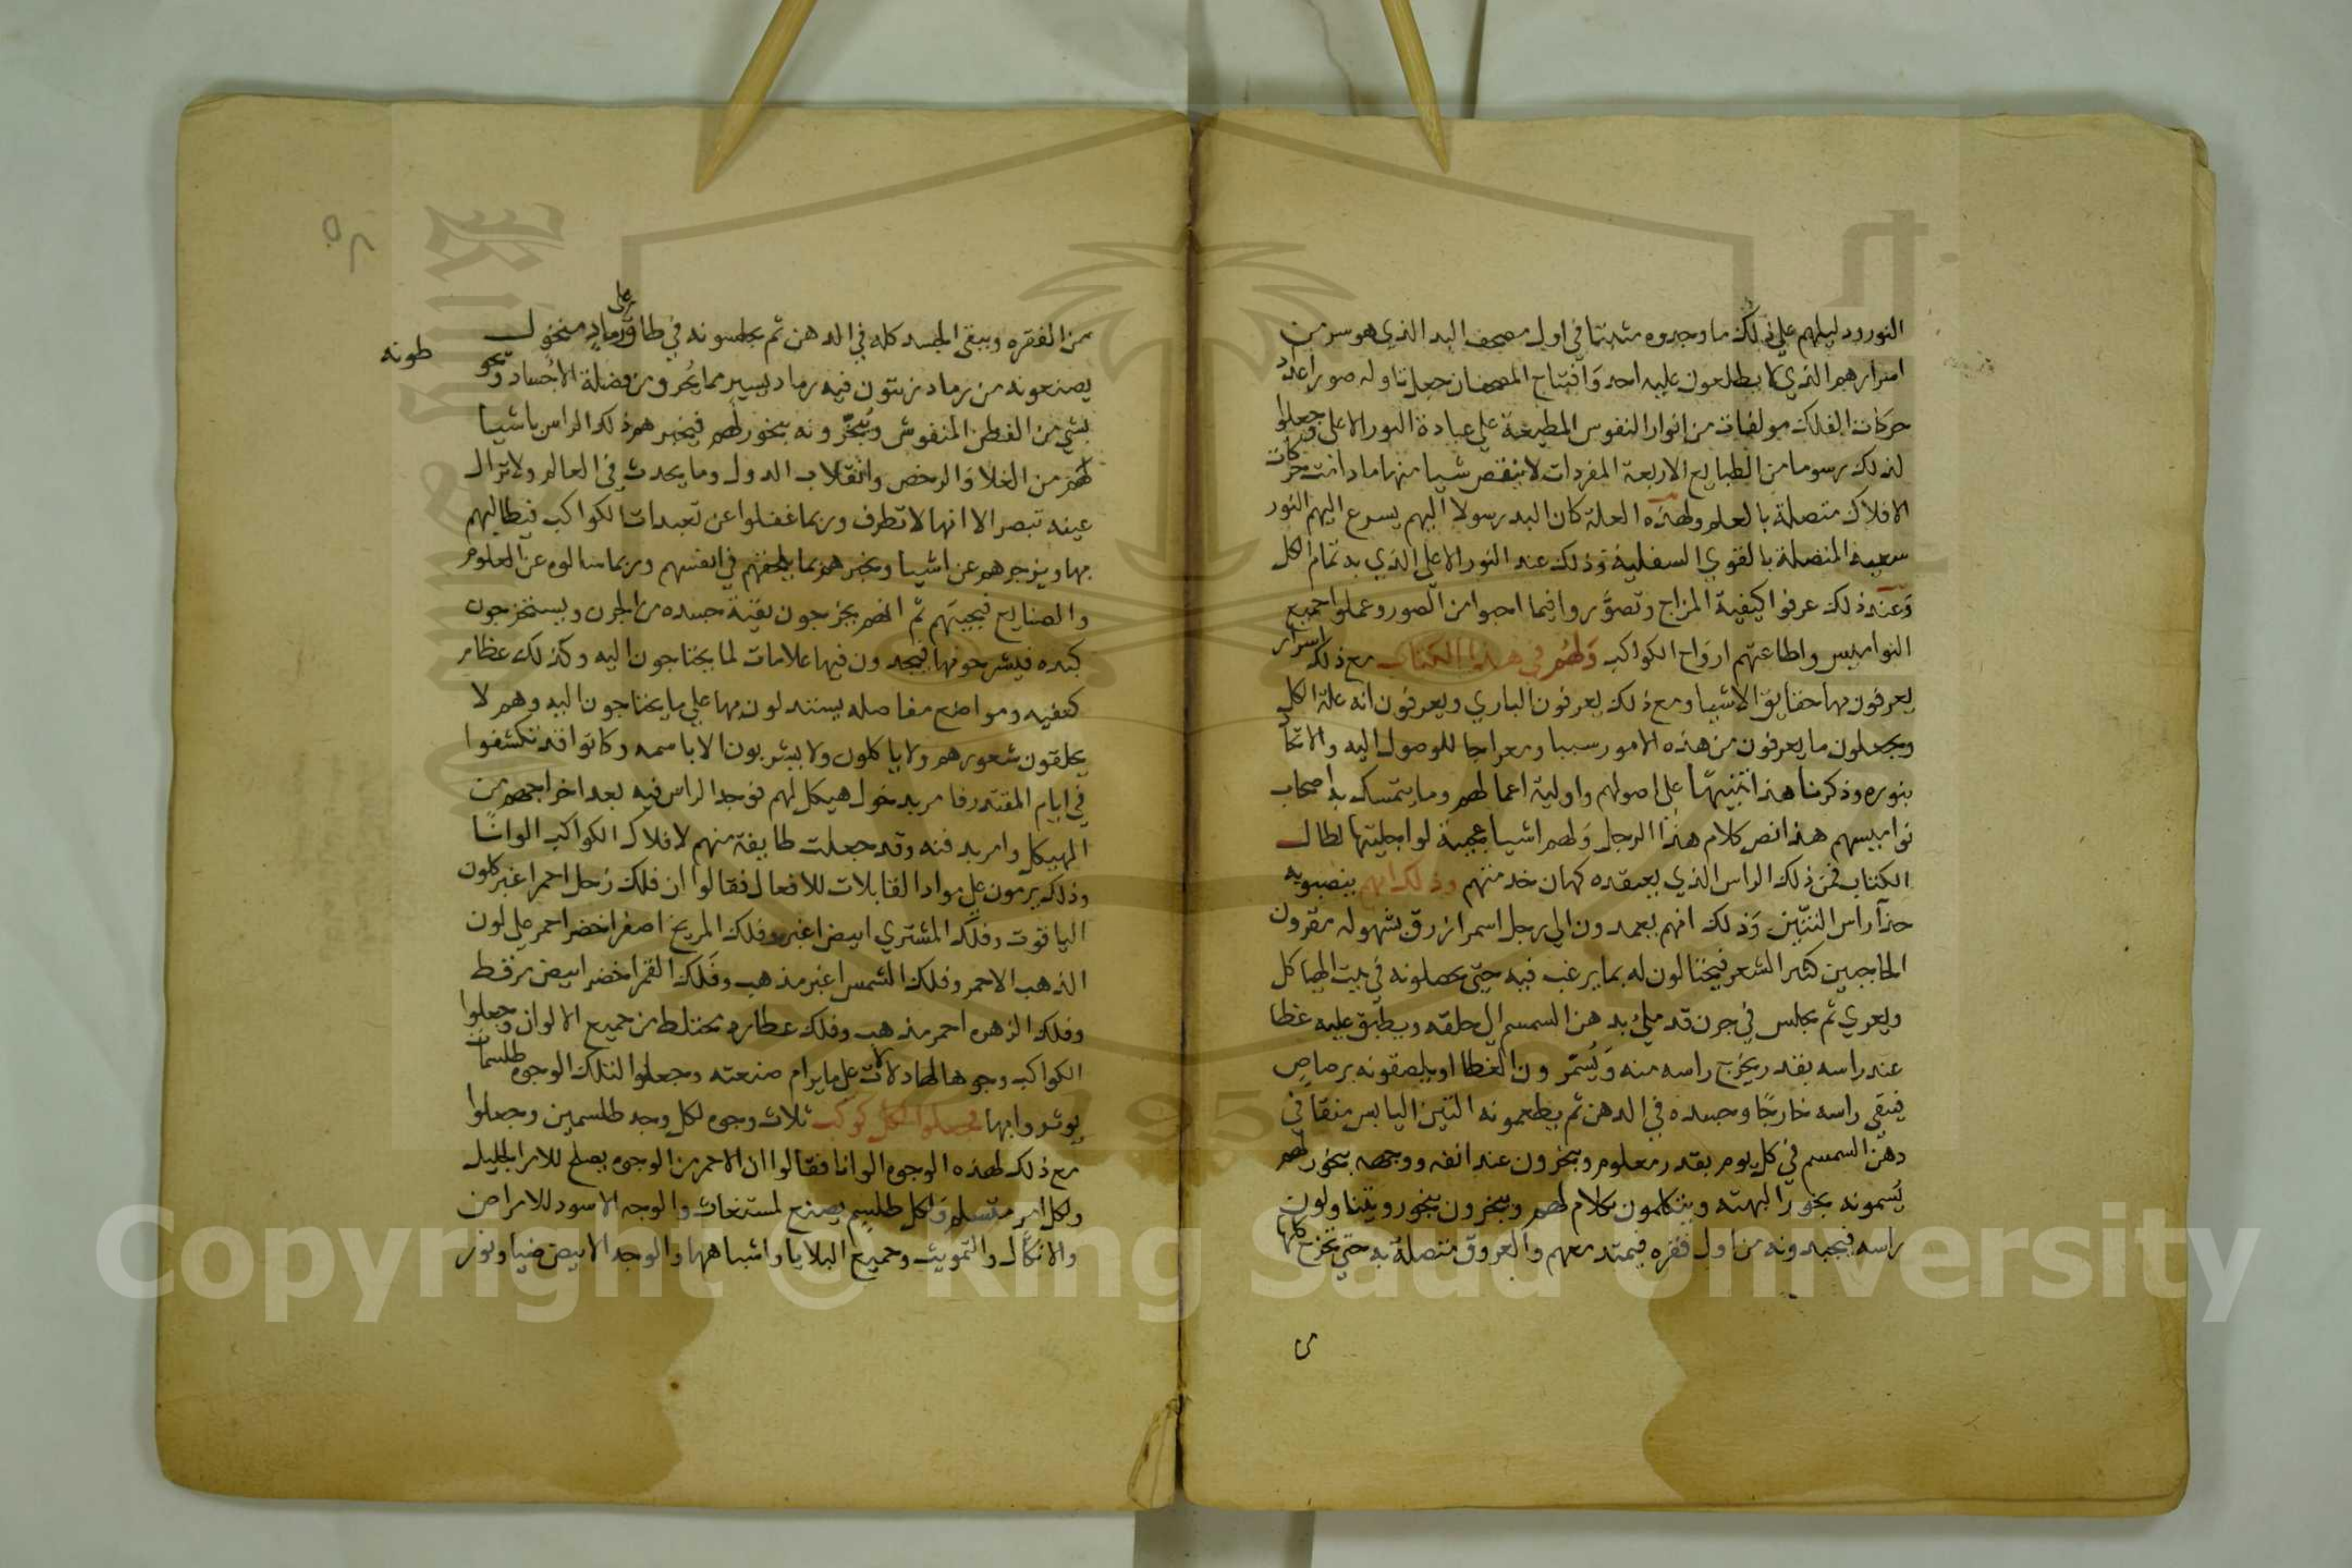 النور ودليلهم علي ذلك ما وجدوه مثبتا في اول مصحف البد الذي هو سر من
اسرارهم الذي لا يطلعون عليه احد وافتتاح المصحف ان جعل تاوله صور اعداد
حركات الفلك مولفات من انوار النفوس المطيعة علي عبادة النور الاعلي وجعلوا
لذلك رسوما من الطبايع الاربعة المفردات لا ينقص شيا منها ما دامت حركات
الافلاك متصلة بالعلم ولهذه العلة كان البد رسولا اليهم يسرع اليهم النور
سعيه المتصلة بالقوي السفلية وذلك عند النور الاعلي الذي به تمام الكل
وعند ذلك عرفوا كيفية المزاج وتصوروا فيما احبوا من الصور وعملوا جميع
النواميس واطاعتهم ارواح الكواكب ولهم في هذا الكتاب مع ذلك اسرار
يعرفون بها حقايق الاشيا ومع ذلك يعرفون الباري ويعرفون انه علة الكل
ويجعلون ما يعرفون من هذه الامور سببا ومعراجا للوصول اليه والاتحاد
بنوره وذكرنا هذا تنبيها علي اصولهم واولية اعمالهم وما يتمسك به اصحاب
نواميسهم هذا نص كلام هذا الرجل ولهم اشيا عجيبة لو اجليتها لطال
الكتاب فمن ذلك الراس الذي يعتقده كهان خدمتهم وذلك انهم ينصبونه
حذا راس التنين وذلك انهم يعمدون الي رجل اسمر ازرق بشهوله مقرون
الحاجبين كثير الشعر فيحتالون له بما يرغب فيه حتي يحصلونه في بيت الهياكل
ويعري ثم يجلس في جرن قد ملئ بدهن السمسم الي حلقه ويطبق عليه غطا
عند راسه بقدر يخرج راسه منه ويسمرون الغطا او يلصقونه برصاص
فيبقي راسه خارجا وجسده في الدهن ثم يطعمونه التين اليابس منقعا في
دهن السمسم في كل يوم بقدر معلوم ويبخرون عند انفه ووجهه ببخور لهم
يسمونه بخور البهته ويتكلمون بكلام لهم ويبخرون ببخور ويتناولون
راسه فيجبدونه من اول فقره فيمتد معهم والعروق متصلة به حتي تخرج كلها
من الفقره ويبقي الجسد كله في الدهن ثم يجلسونه في طاق علي رماد منخول
يصنعونه من رماد زيتون فيه رماد يسير مما يحرق من فضلة الاجساد ويحو
طونه
بشي من القطن المنفوش ويبخرونه ببخور لهم فيخبرهم ذلك الراس باشيا
لهم من الغلا والرخص وانقلاب الدول وما يحدث في العالم ولا تزال
عينه تبصر الا انها لا تطرف وربما غفلوا عن تعبدات الكواكب فيطالبهم
بها ويزجرهم عن اشيا ويخبرهم بما يلحقهم في انفسهم وربما سالوه عن العلوم
والصنايع فيجيبهم ثم انهم يخرجون بقية جسده من الجرن ويستخرجون
كبده فيشرحونها فيجدون فيها علامات لما يحتاجون اليه وكذلك عظام
كتفيه ومواضع مفاصله يستدلون بها علي ما يحتاجون اليه وهم لا
يحلقون شعورهم ولا ياكلون ولا يشربون الا باسمه وكانوا قد تكشفوا
في ايام المقتدر فامر بدخول هيكل لهم فوجد الراس فيه بعد اخراجهم من
الهيكل وامر بدفنه وقد جعلت طايفة منهم لافلاك الكواكب الوانا
وذلك يرمون علي مواد القابلات للافعال فقالوا ان فلك زحل احمر اغبر كلون
الياقوت وفلك المشتري ابيض اغبر وفلك المريخ اصفر اخضر احمر علي لون
الذهب الاحمر وفلك الشمس اغبر مذهب وفلك القمر اخضر ابيض مرقط
وفلك الزهره احمر مذهب وفلك عطارد مختلط من جميع الالوان وجعلوا
الكواكب وجوها لها دلالات علي ما يرام صنعته وجعلوا لتلك الوجوه طلسمات
يوثروا بها فجعلوا لكل كوكب ثلاث وجوه لكل وجه طلسمين وجعلوا
مع ذلك لهذه الوجوه الوانا فقالوا ان الاحمر من الوجوه يصلح للامر الجليل
ولكل امر ولكل طلسم يصنع لمستغاث والوجه الاسود للامراض
والانكال والتمويت وجميع البلايا واشباهها والوجه الابيض ضيا ونور